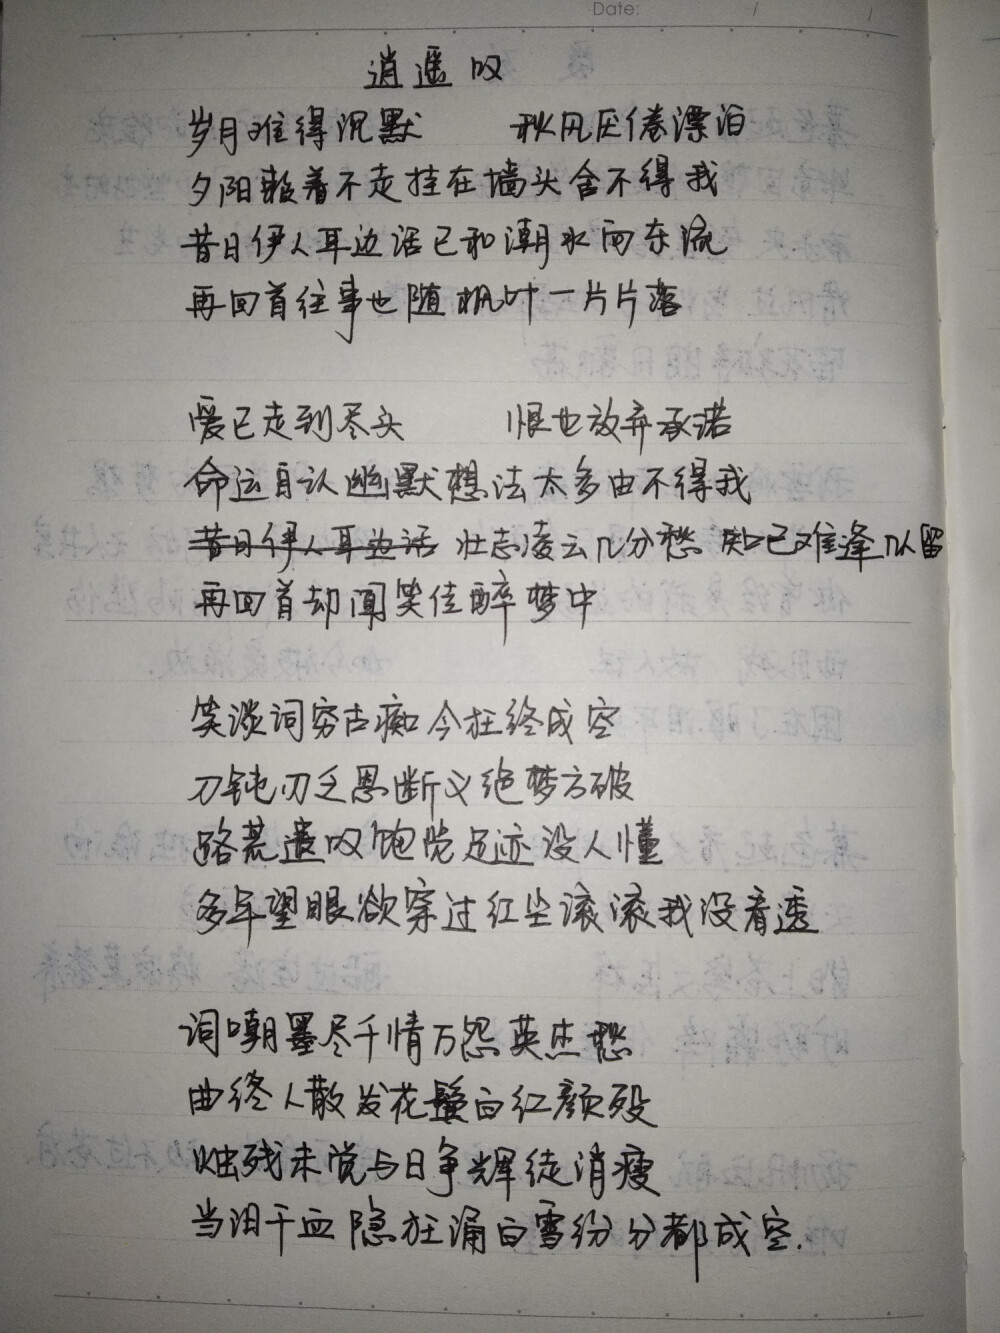 Date: / /
逍遥叹
岁月难得沉默 秋风厌倦漂泊
夕阳赖着不走挂在墙头舍不得我
昔日伊人耳边话已和潮水向东流
再回首往事也随枫叶一片片落
爱已走到尽头 恨也放弃承诺
命运自认幽默想法太多由不得我
昔日伊人耳边话 壮志凌云几分愁 知己难逢几人留
再回首却闻笑传醉梦中
笑谈词穷古痴今狂终成空
刀钝刃乏恩断义绝梦方破
路荒遗叹饱览足迹没人懂
多年望眼欲穿过红尘滚滚我没看透
词嘲墨尽千情万怨英杰愁
曲终人散发花鬓白红颜殁
烛残未觉与日争辉徒消瘦
当泪干血隐狂涌白雪纷纷都成空.